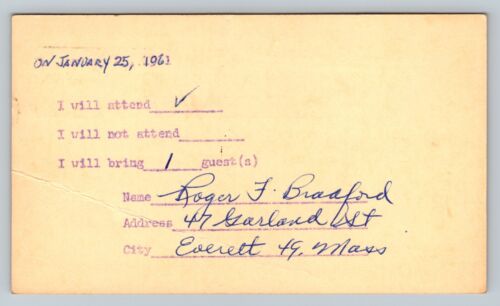 ON JANUARY 25, 1961
I will attend ✓
I will not attend
I will bring 1 guest(s)
Name Roger F. Bradford
Address 47 Garland St
City Everett 49, Mass